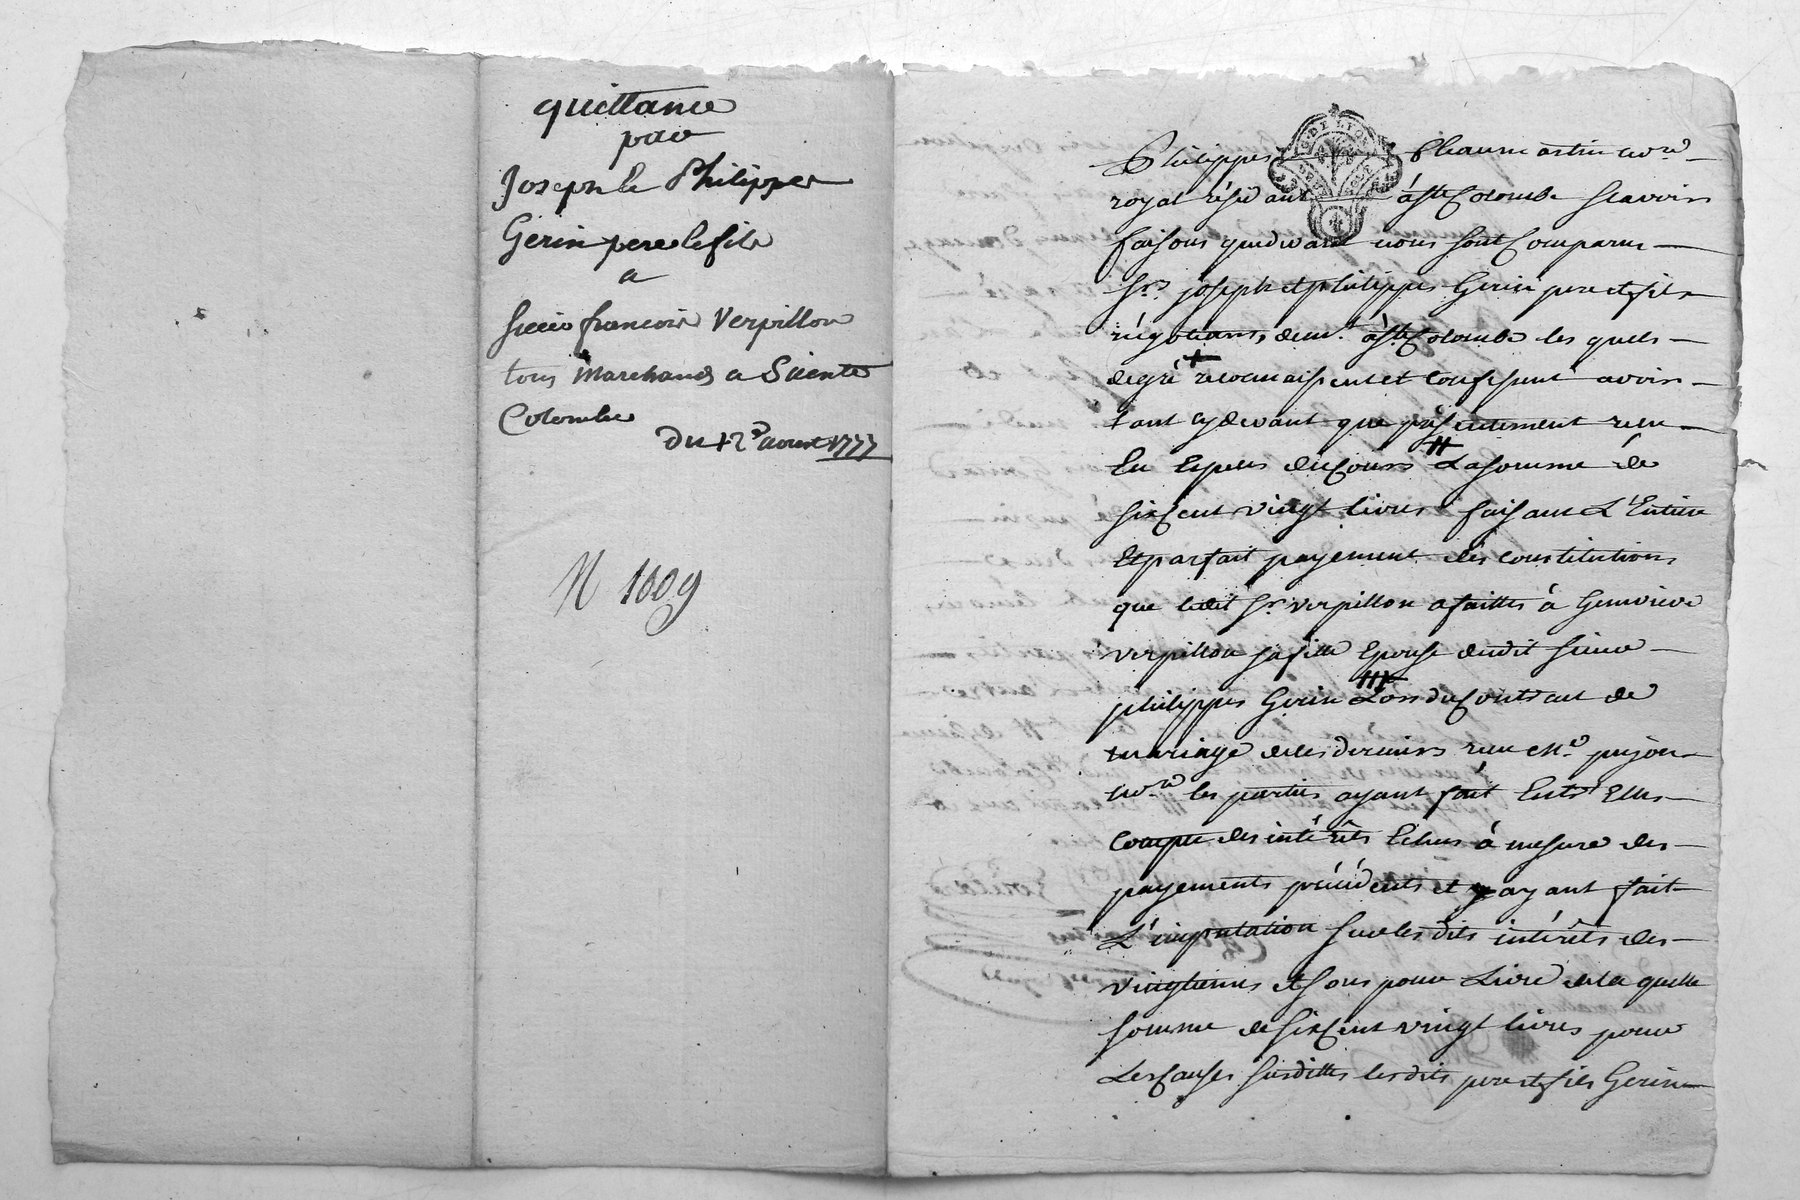 quittance
par
Joseph & Philippe
Gerin pere & fils
a
Sieur francois Verpillon
tous Marchands a Sainte
Colombe
du 12 aoust 1777
N 1009
Philippes Chaumartin no.re
royal résidant à Ste Colombe scavoir
faisons que devant nous sont comparus
Srs. joseph et philippes Gerin pere et fils
négotiants dem.t à Ste Colombe les quels
degré + reconnaissent et confessent avoir
tant cy devant que présentement reçu
En Espèces du cours # La somme de
six cent vingt livres faisant L'Entier
et parfait payement des constitutions
que ledit Sr. verpillon a faittes à Genevieve
verpillon sa fille Epouse dudit sieur
philippes Gerin Lors du Contract de
mariage de ces derniers reçu Me. pujon
no.re les parties ayant fait Entr'Elles
Compte des intérêts Echus à mesure des
payements précédents et y ayant fait
L'imputation sur les dits intérêts des
vingtiemes et sous pour Livre de la quelle
somme de six cent vingt livres pour
Les causes susdittes les dits pere et fils Gerin